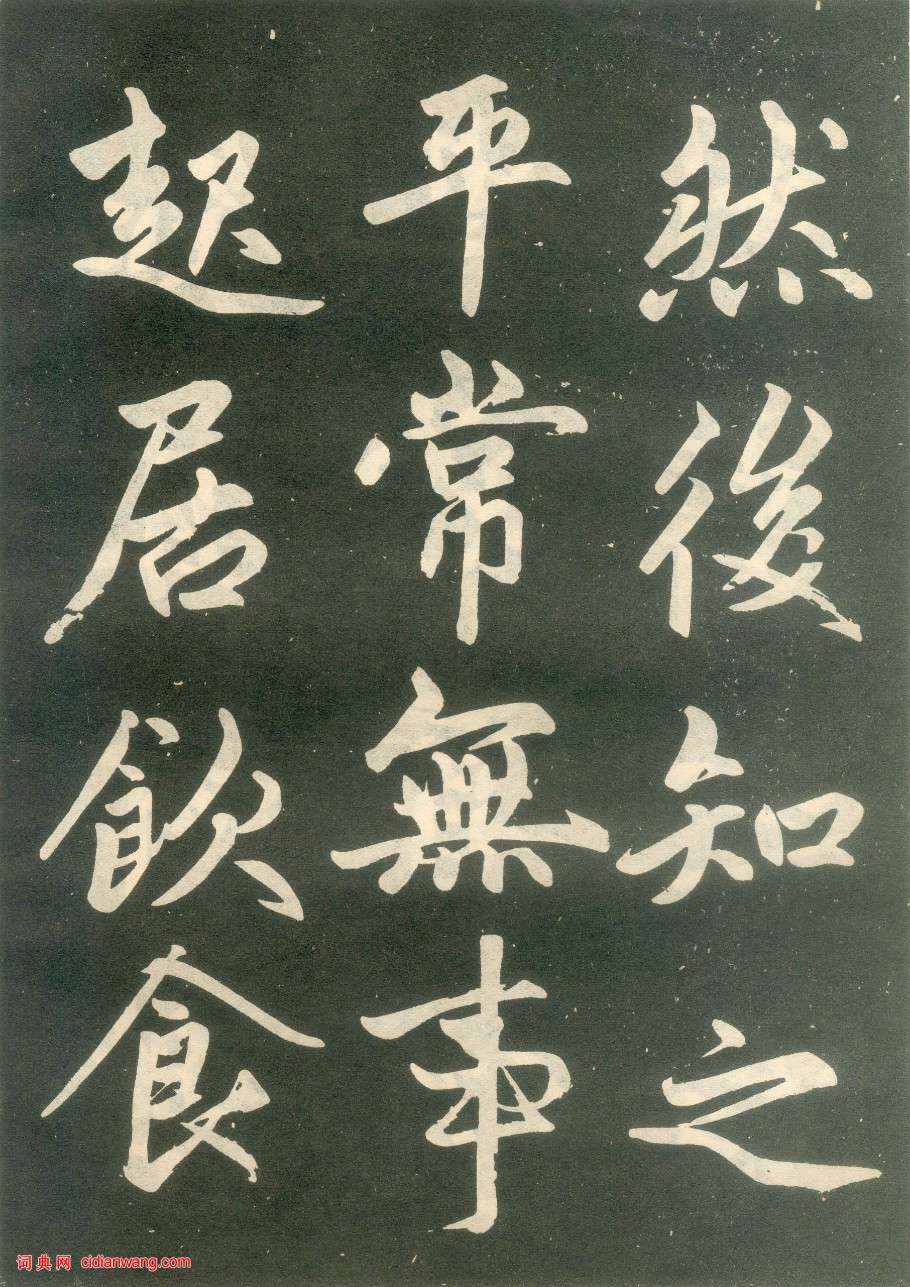 然後知之
平常無事
起居飲食
词典网 cidianwang.com